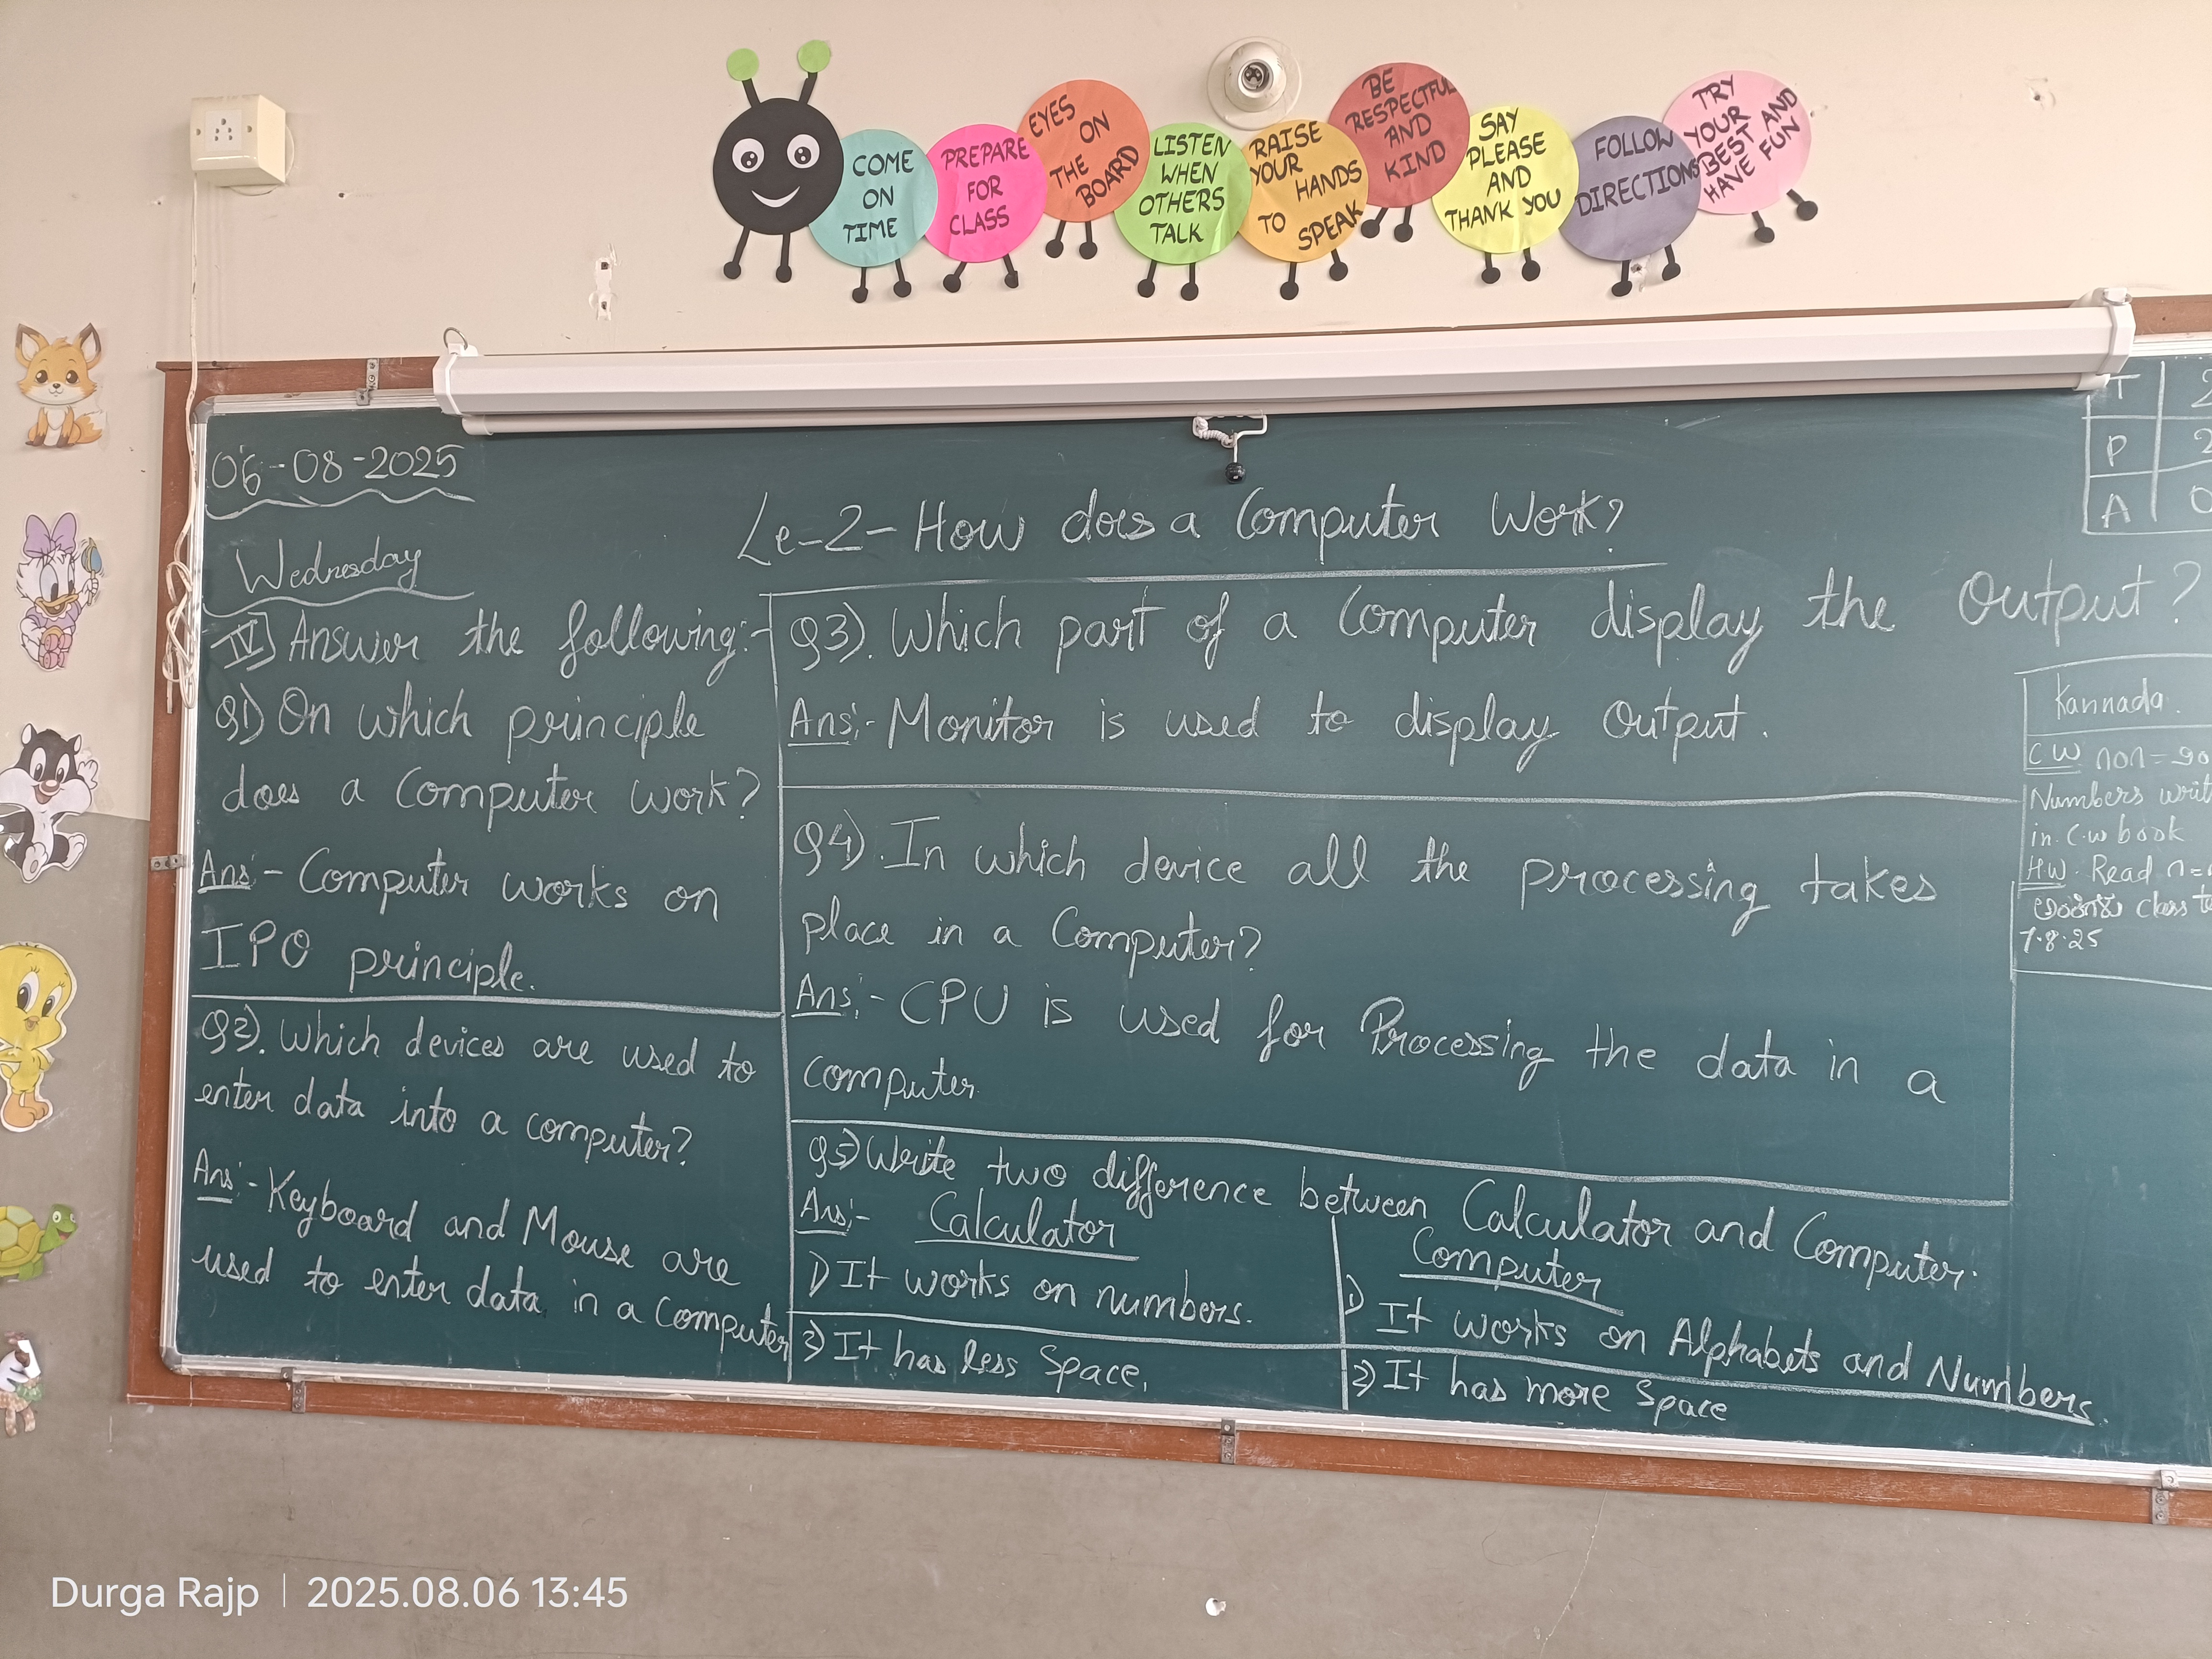 COME
ON
TIME
PREPARE
FOR
CLASS
EYES
ON
THE
BOARD
LISTEN
WHEN
OTHERS
TALK
RAISE
YOUR
HANDS
TO
SPEAK
BE
RESPECTFUL
AND
KIND
SAY
PLEASE
AND
THANK YOU
FOLLOW
DIRECTIONS
TRY
YOUR
BEST AND
HAVE FUN
06-08-2025
Wednesday
Le-2- How does a Computer Work?
IV) Answer the following:-
Q1) On which principle
does a Computer work?
Ans:- Computer works on
IPO principle.
Q2). Which devices are used to
enter data into a computer?
Ans:- Keyboard and Mouse are
used to enter data in a Computer
Q3). Which part of a Computer display the Output?
Ans:- Monitor is used to display Output.
Q4). In which device all the processing takes
place in a Computer?
Ans:- CPU is used for Processing the data in a
computer
Q5) Write two difference between Calculator and Computer.
Ans:- Calculator
1) It works on numbers.
2) It has less Space.
Computer
1) It works on Alphabets and Numbers.
2) It has more Space
T 2
P 2
A 0
Kannada.
CW
Numbers writ
in C.w book
HW. Read
class
7.8.25
Durga Rajp | 2025.08.06 13:45